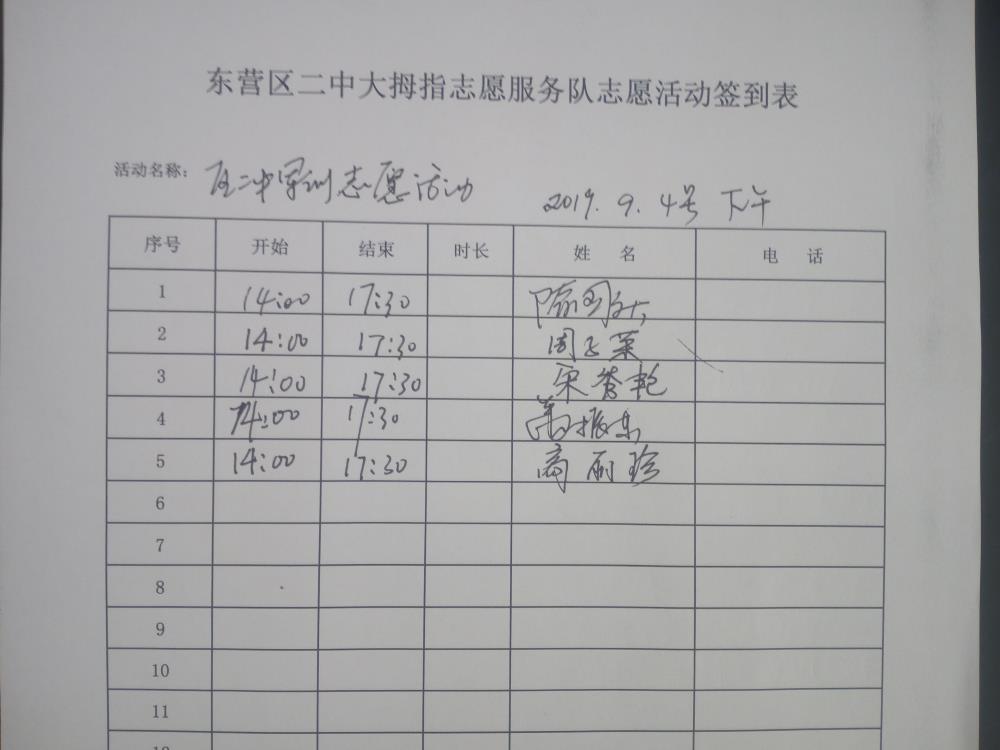 东营区二中大拇指志愿服务队志愿活动签到表
活动名称： 区二中军训志愿活动 2019.9.4号 下午
序号 开始 结束 时长 姓名 电话
1 14:00 17:30
2 14:00 17:30 周
3 14:00 17:30 宋 艳
4 14:00 17:30 高振东
5 14:00 17:30 商丽珍
6
7
8
9
10
11